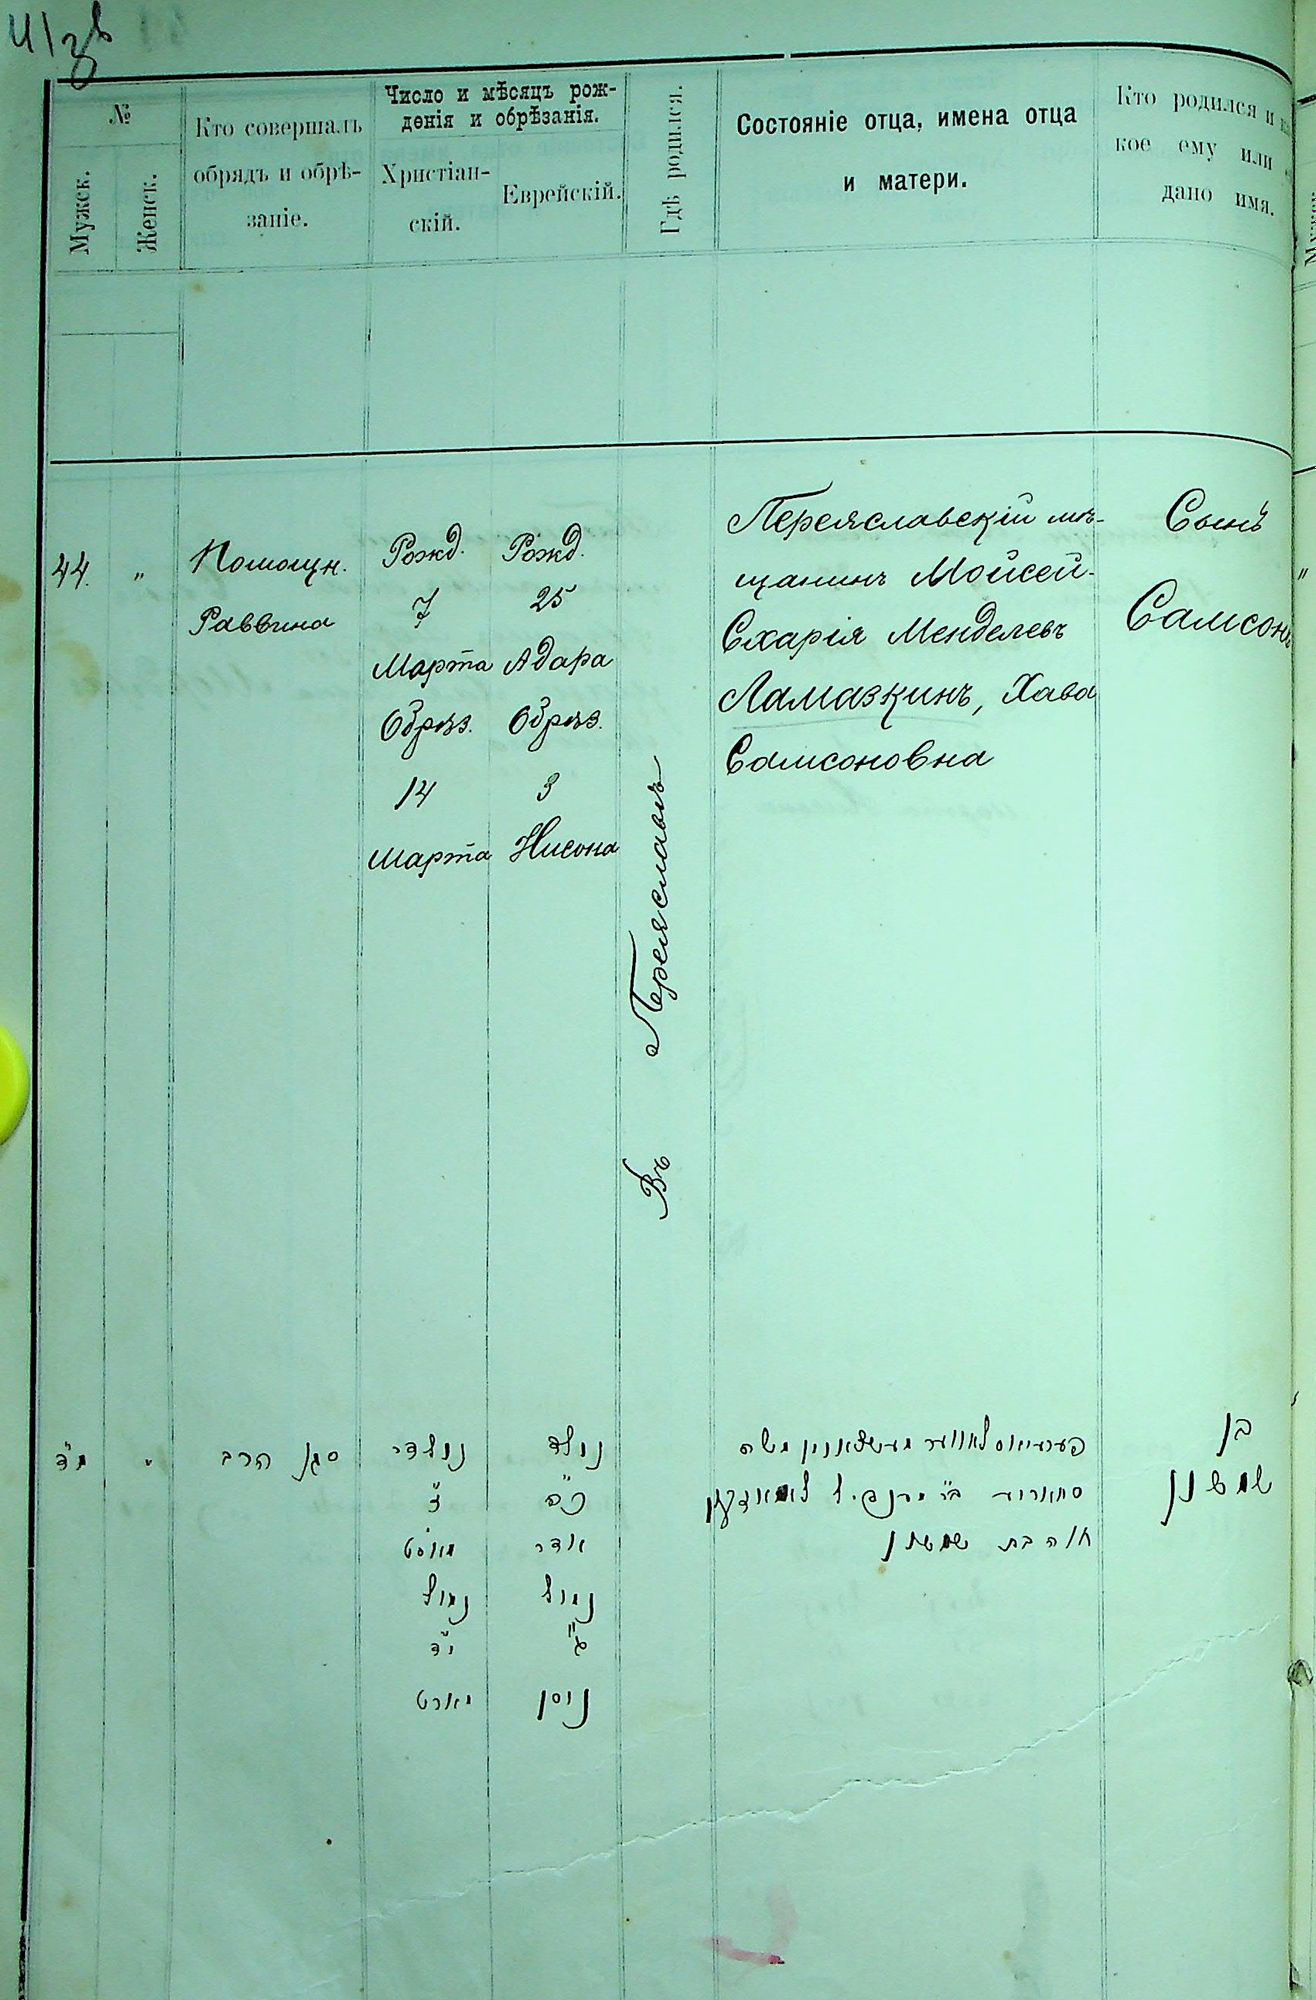 №
Мужск.
Женск.
Кто совершалъ
обрядъ и обрѣ-
заніе.
Число и мѣсяцъ рож-
денія и обрѣзанія.
Христіан-
скій.
Еврейскій.
Гдѣ родился.
Состояніе отца, имена отца
и матери.
Кто родился и
кое ему или
дано имя.
44.
"
Помощн.
Раввина
Рожд.
7
Марта
Обрѣз.
14
Марта
Рожд.
25
Адара
Обрѣз.
3
Нисона
Въ Переяславѣ
Переяславскій мѣ-
щанинъ Мойсей-
Схарія Менделевъ
Ламазкинъ, Хава
Самсоновна
Сынъ
Самсонъ
"
מ"ד
"
סגן הרב
נולד
ז'
נימול
י"ד
מארט
נולד
כ"ה
אדר
נימול
ג'
ניסן
משה
חוה בת שמשון
בן
שמשון